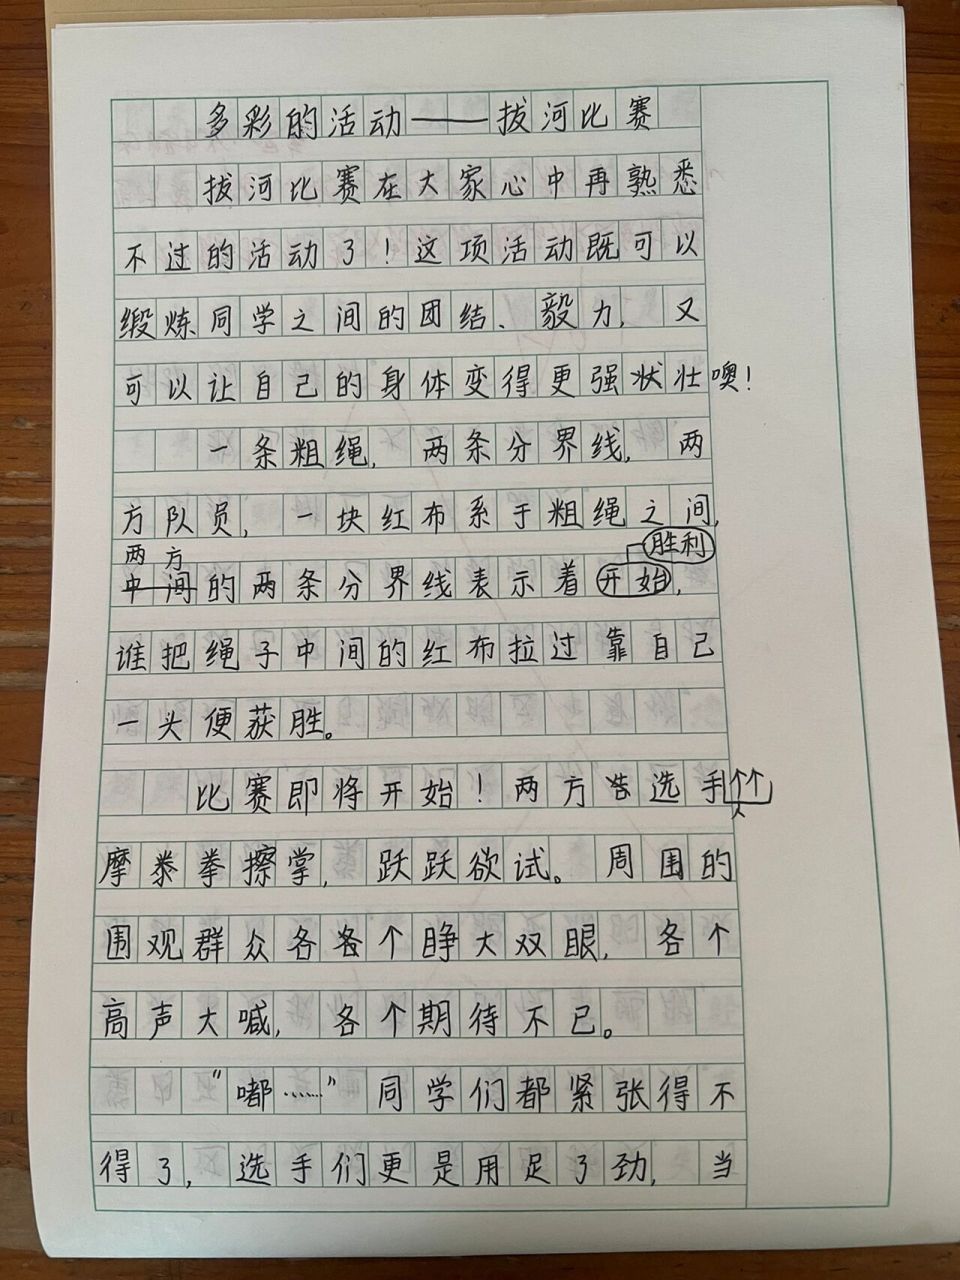 多彩的活动——拔河比赛
拔河比赛在大家心中再熟悉
不过的活动了！这项活动既可以
缎炼同学之间的团结、毅力，又
可以让自己的身体变得更强状壮噢！
一条粗绳，两条分界线，两
方队员，一块红布系于粗绳之间，
两方 胜利
中间的两条分界线表示着开始，
谁把绳子中间的红布拉过靠自己
一头便获胜。
比赛即将开始！两方选手个个
摩拳擦掌，跃跃欲试。周围的
围观群众各个睁大双眼，各个
高声大喊，各个期待不已。
“嘟……”同学们都紧张得不
得了，选手们更是用足了劲，当